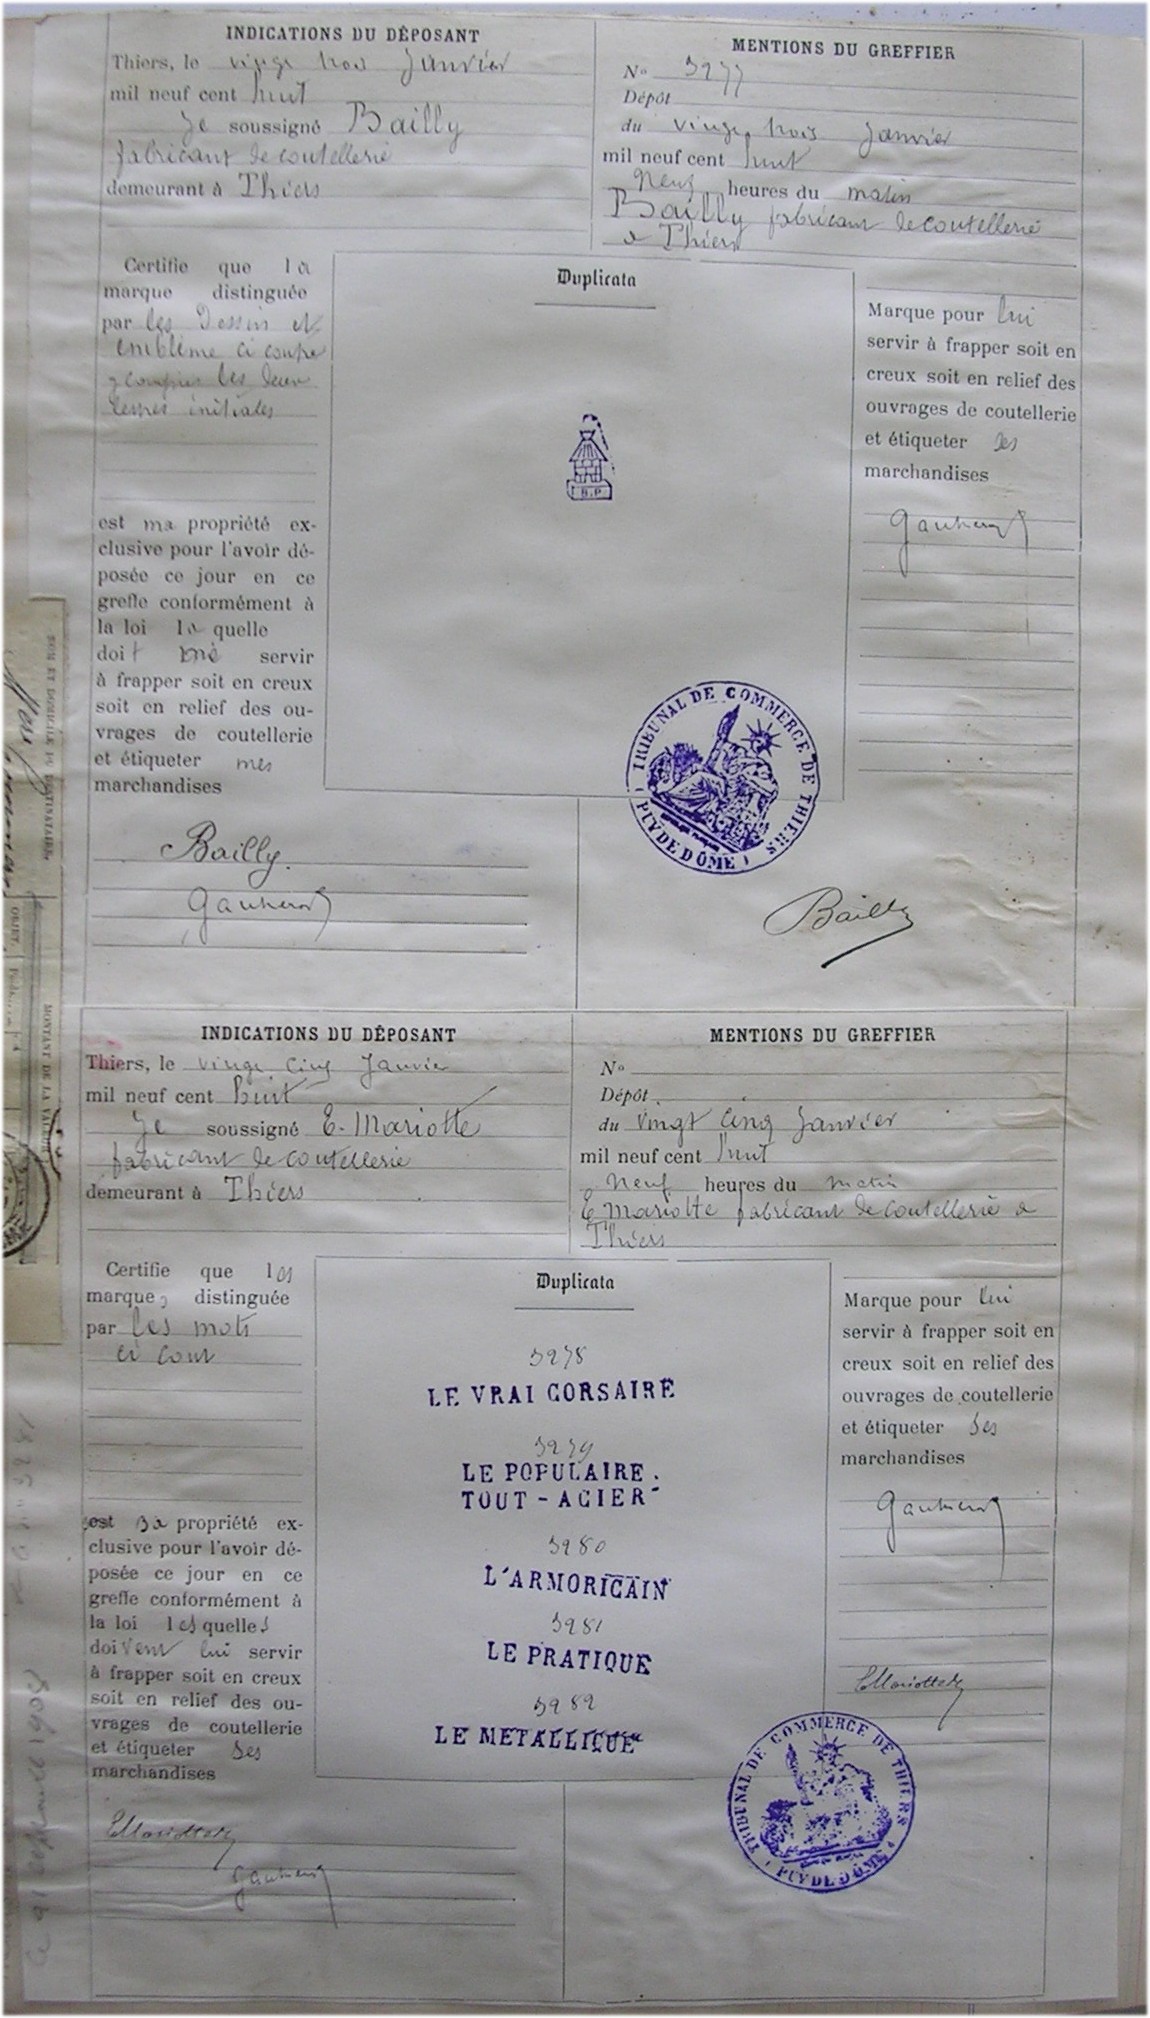 INDICATIONS DU DÉPOSANT
Thiers, le vingt trois Janvier
mil neuf cent huit
Je soussigné Bailly
fabricant de coutellerie
demeurant à Thiers
MENTIONS DU GREFFIER
No 3977
Dépôt
du vingt trois Janvier
mil neuf cent huit
Neuf heures du matin
Bailly fabricant de coutellerie
a Thiers
Certifie que la
marque distinguée
par les Dessin et
emblème ci contre
y compris les deux
initiales
est ma propriété ex-
clusive pour l'avoir dé-
posée ce jour en ce
greffe conformément à
la loi la quelle
doit me servir
à frapper soit en creux
soit en relief des ou-
vrages de coutellerie
et étiqueter mes
marchandises
Bailly
Gautheron
Duplicata
B.P.
TRIBUNAL DE COMMERCE DE THIERS
PUY DE DÔME
Marque pour lui
servir à frapper soit en
creux soit en relief des
ouvrages de coutellerie
et étiqueter ses
marchandises
Gautheron
Bailly
NOM ET DOMICILE DU DESTINATAIRE.
OBJET
MONTANT DE LA VALEUR
INDICATIONS DU DÉPOSANT
Thiers, le vingt cinq Janvier
mil neuf cent huit
Je soussigné E. Mariotte
fabricant de coutellerie
demeurant à Thiers
MENTIONS DU GREFFIER
No
Dépôt
du vingt cinq Janvier
mil neuf cent huit
Neuf heures du matin
E Mariotte fabricant de coutellerie a
Thiers
Certifie que les
marques distinguée
par les mots
ci cont
est sa propriété ex-
clusive pour l'avoir dé-
posée ce jour en ce
greffe conformément à
la loi lesquelles
doivent lui servir
à frapper soit en creux
soit en relief des ou-
vrages de coutellerie
et étiqueter ses
marchandises
EMariotte
Gautheron
Duplicata
3978
LE VRAI CORSAIRE
3979
LE POPULAIRE.
TOUT-ACIER
3980
L'ARMORICAIN
3981
LE PRATIQUE
3982
LE METALLIQUE
Marque pour lui
servir à frapper soit en
creux soit en relief des
ouvrages de coutellerie
et étiqueter ses
marchandises
Gautheron
EMariotte
TRIBUNAL DE COMMERCE DE THIERS
PUY DE DÔME